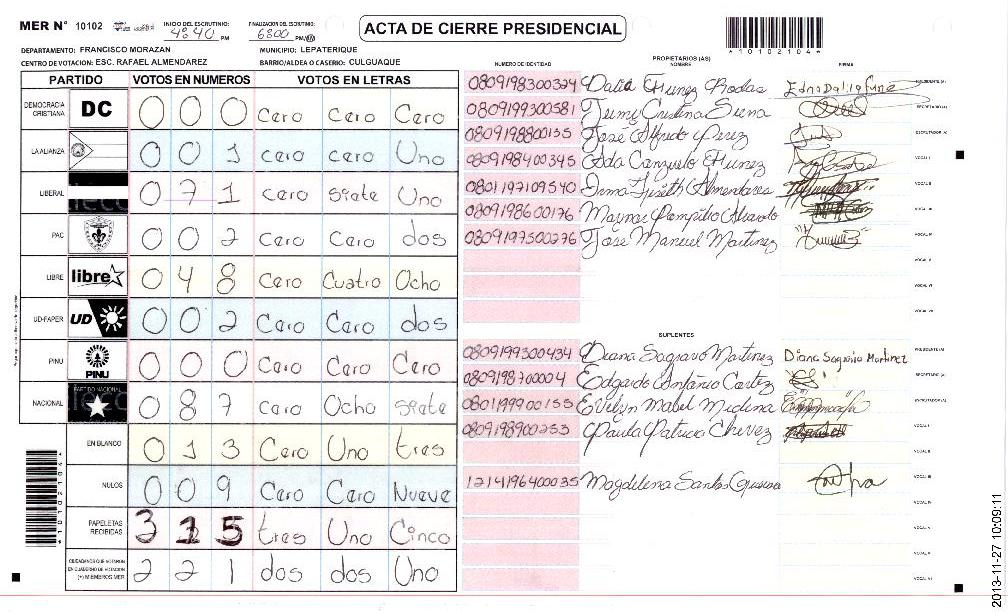 MER N° 10102 INICIO DEL ESCRUTINIO: 4:40 PM FINALIZACION DEL ESCRUTINIO: 6:00 PM
ACTA DE CIERRE PRESIDENCIAL
*10102104*
DEPARTAMENTO: FRANCISCO MORAZAN MUNICIPIO: LEPATERIQUE
CENTRO DE VOTACION: ESC. RAFAEL ALMENDAREZ BARRIO/ALDEA O CASERIO: CULGUAQUE
PARTIDO VOTOS EN NUMEROS VOTOS EN LETRAS
DEMOCRACIA CRISTIANA DC 0 0 0 Cero cero Cero
LA ALIANZA 0 0 1 cero cero Uno
LIBERAL 0 7 1 cero siete Uno
PAC 0 0 2 Cero Cero dos
LIBRE libre 0 4 8 Cero Cuatro Ocho
UD-FAPER UD 0 0 2 Cero Cero dos
PINU PINU 0 0 0 Cero Cero Cero
NACIONAL PARTIDO NACIONAL 0 8 7 cero Ocho siete
EN BLANCO 0 1 3 Cero Uno tres
NULOS 0 0 9 Cero Cero Nueve
PAPELETAS RECIBIDAS 3 1 5 tres Uno Cinco
CIUDADANOS QUE VOTARON EN CUADERNO DE VOTACION (+) MIEMBROS MER 2 2 1 dos dos Uno
PROPIETARIOS (AS)
NUMERO DE IDENTIDAD NOMBRE FIRMA
0809198300324 Dalia Funez Rodas Edna Dalila Funez PRESIDENTE (A)
0809199300581 Cristina SECRETARIO (A)
0809198800135 José Alfredo Perez ESCRUTADOR (A)
0809198400345 Ada Funez VOCAL I
0801197109540 Irma Lizeth Almendares VOCAL II
0809198600176 Maynor Pompilio Alvarado VOCAL III
0809197500276 Jose Manuel Martinez VOCAL IV
VOCAL V
VOCAL VI
VOCAL VII
SUPLENTES
0809199300434 Diana Sagrario Martinez Diana Sagrario Martinez PRESIDENTE (A)
0809198700004 Edgardo Antonio Cortez SECRETARIO (A)
0801199900155 Evelyn Mabel Medina ESCRUTADOR (A)
0809198900253 Paula Patricia Chevez VOCAL I
VOCAL II
1214196400035 Magdelena Santos VOCAL III
VOCAL IV
VOCAL V
VOCAL VI
2013-11-27 10:09:11